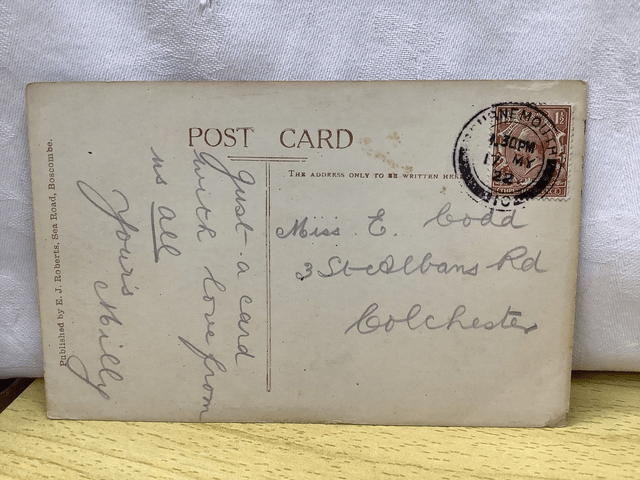 POST CARD
THE ADDRESS ONLY TO BE WRITTEN HERE
BOURNEMOUTH
1.30PM
17 MY
22
1½
Just a card
with love from
us all
Yours
Milly
Miss E. Codd
3 St Albans Rd
Colchester
Published by E. J. Roberts, Sea Road, Boscombe.